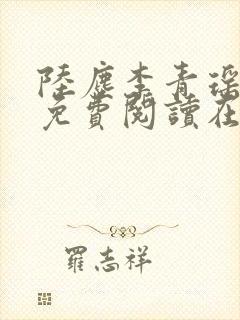 陸塵李青瑶
免費閱讀在
羅志祥